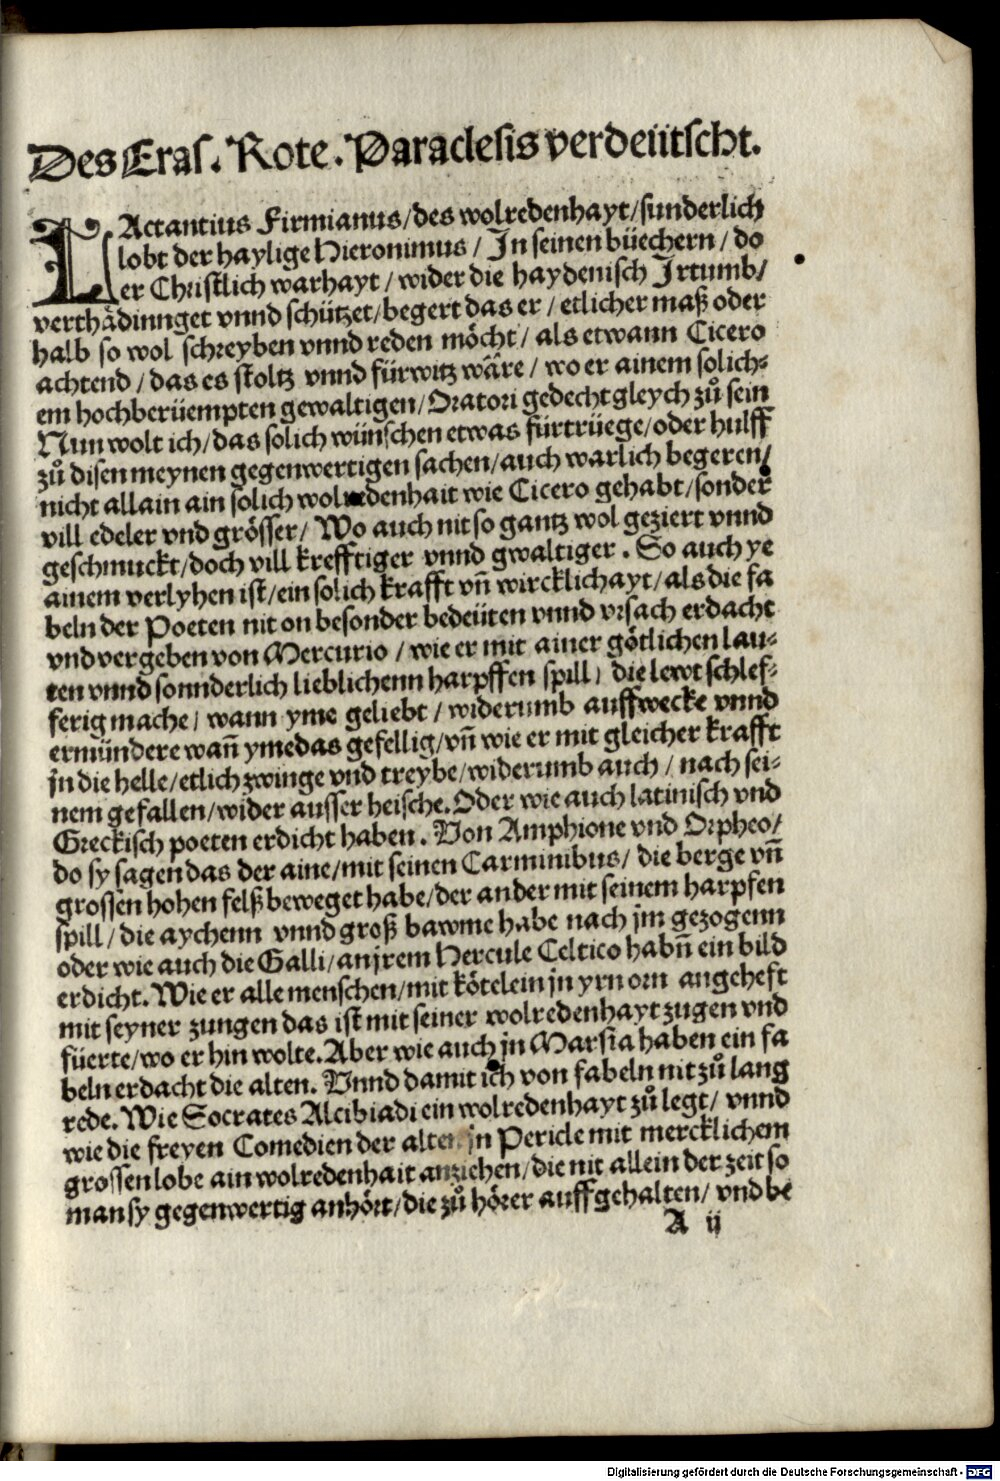 Des Eras. Rote. Paraclesis verdeütscht.
LActantius Firmianus/des wolredenhayt/sunderlich
lobt der haylige Hieronimus / In seinen büechern / do
er Christlich warhayt / wider die haydenisch Irtumb/
verthädinnget vnnd schützet/begert das er / etlicher maß oder
halb so wol schreyben vnnd reden möcht / als etwann Cicero
achtend / das es stoltz vnnd fürwitz wäre / wo er ainem solich⸗
em hochberüempten gewaltigen/Oratori gedecht gleych zů sein
Nun wolt ich/das solich wünschen etwas fürtrüege/oder hulff
zů disen meynen gegenwertigen sachen/auch warlich begeren/
nicht allain ain solich wolredenhait wie Cicero gehabt/sonder
vill edeler vnd grösser/ Wo auch nit so gantz wol geziert vnnd
geschmuckt/doch vill krefftiger vnnd gwaltiger . So auch ye
ainem verlyhen ist/ein solich krafft vñ wircklichayt/als die fa
beln der Poeten nit on besonder bedeüten vnnd vrsach erdacht
vnd vergeben von Mercurio / wie er mit ainer götlichen lau⸗
ten vnnd sonnderlich lieblichenn harpffen spill/ die lewt schlef⸗
ferig mache/ wann yme geliebt / widerumb auffwecke vnnd
ermündere wañ yme das gefellig/vñ wie er mit gleicher krafft
jn die helle/etlich zwinge vnd treybe/widerumb auch / nach sei⸗
nem gefallen/wider ausser heische. Oder wie auch latinisch vnd
Greckisch poeten erdicht haben . Von Amphione vnd Orpheo/
do sy sagen das der aine/mit seinen Carminibus/ die berge vñ
grossen hohen felß beweget habe/der ander mit seinem harpfen
spill/die aychenn vnnd groß bawme habe nach jm gezogenn
oder wie auch die Galli/an jrem Hercule Celtico habñ ein bild
erdicht. Wie er alle menschen/mit kötelein jn yrn orn angeheft
mit seyner zungen das ist mit seiner wolredenhayt zugen vnd
füerte/wo er hin wolte. Aber wie auch jn Marsia haben ein fa
beln erdacht die alten. Vnnd damit ich von fabeln nit zů lang
rede. Wie Socrates Alcibiadi ein wolredenhayt zů legt/ vnnd
wie die freyen Comedien der alten jn Pericle mit mercklichem
grossen lobe ain wolredenhait anziehen/die nit allein der zeit so
man sy gegenwertig anhört/die zů hörer auffgehalten/ vnd be
A ij
Digitalisierung gefördert durch die Deutsche Forschungsgemeinschaft - DFG